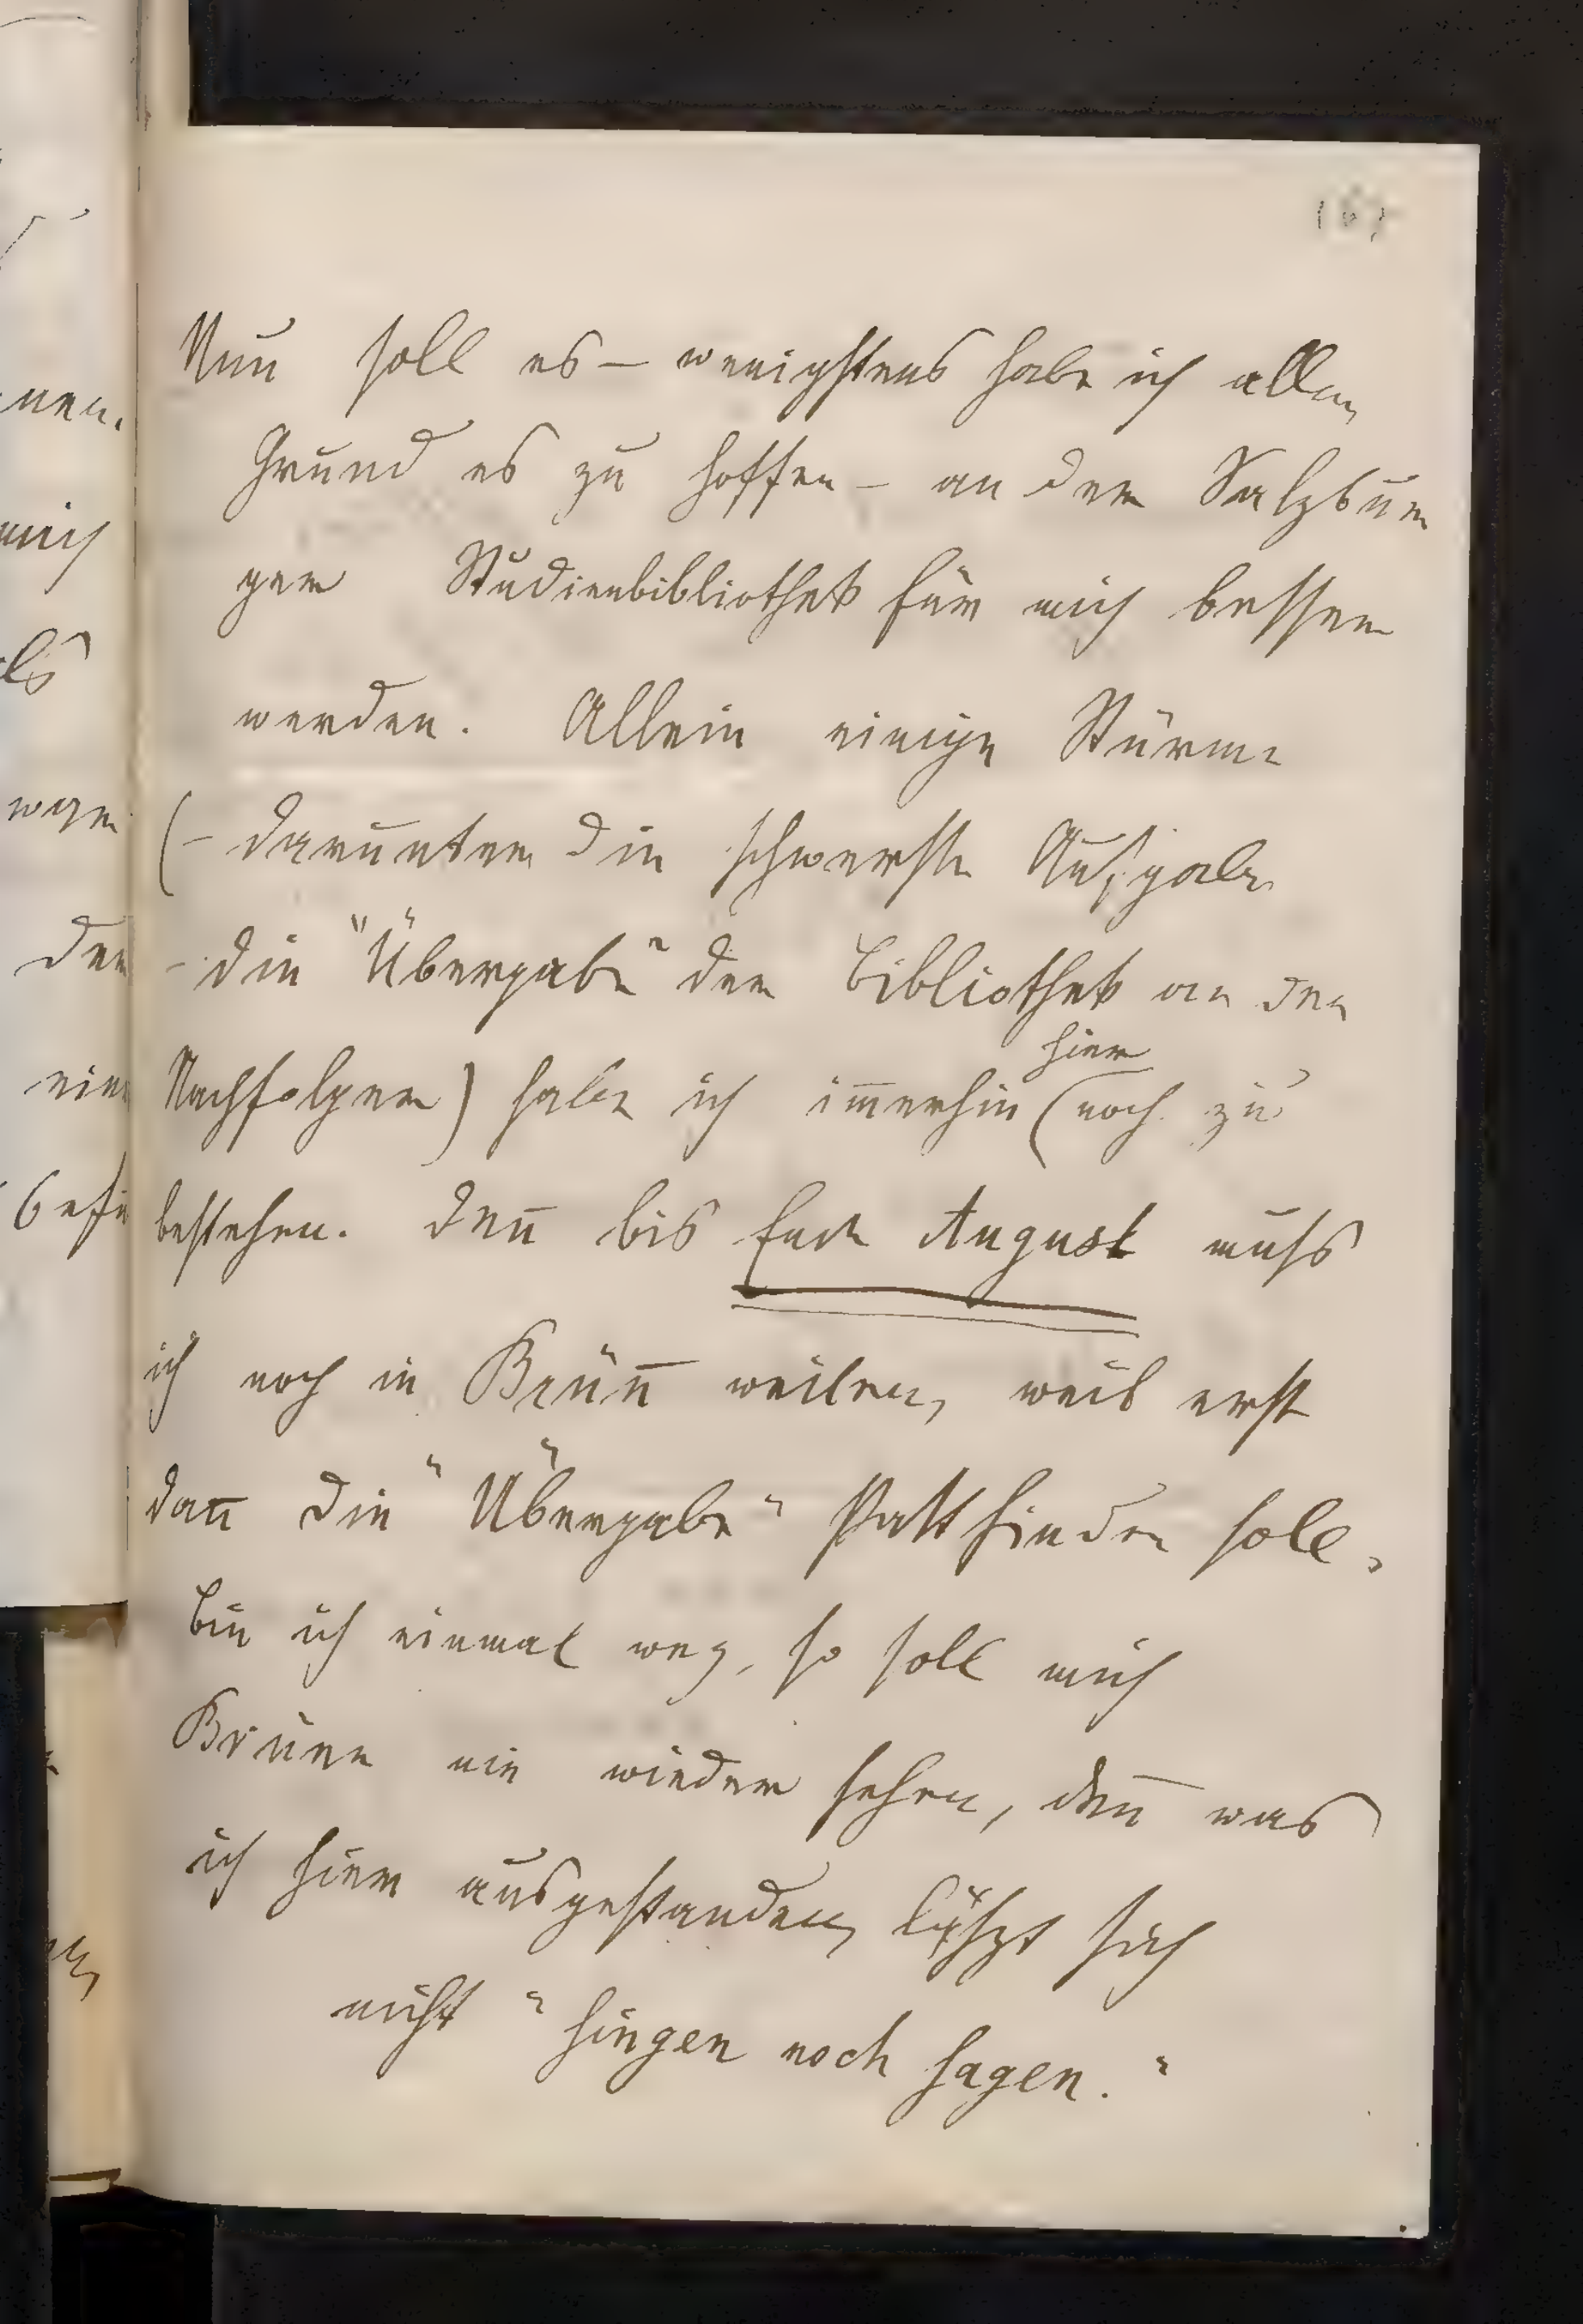 Nun soll es – wenigstens habe ich allen
Grund es zu hoffen – an der Salzbur
ger Studienbibliothek für mich besser
werden. Allein einige Stürme
(– darunter die schwerste Aufgabe
– die "Übergabe" der Bibliothek an den
hier
Nachfolger) habe ich im̅erhin (noch zu
bestehen. Den̅ bis Ende August muss
ich noch in Brün̅ weilen, weil erst
dan̅ die "Übergabe" stattfinden soll.
Bin ich einmal weg, so soll mich
Brünn nie wieder sehen, den̅ was
ich hier ausgestanden, sich
nicht "singen noch sagen."
nen.
mich
als
der